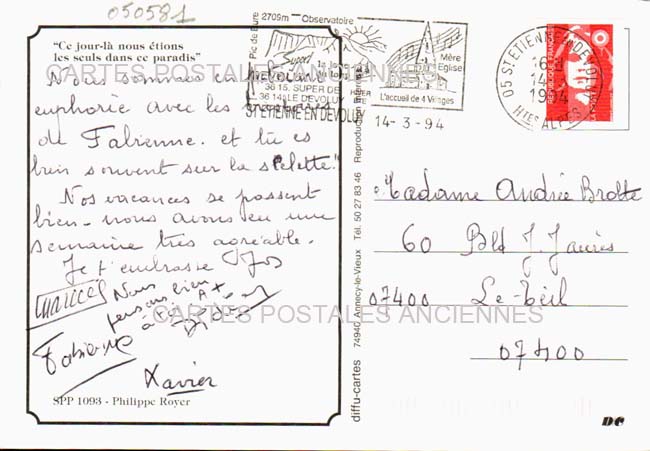 050581
"Ce jour-là nous étions
les seuls dans ce paradis"
CARTES POSTALES ANCIENNES
Nous sommes en
euphorie avec les
de Fabienne. et tu es
bien souvent sur la
Nos vacances se passent
bien. nous avons eu une
semaine très agréable.
Je t'embrasse
Nous
pensons bien
à toi
Fabienne
Xavier
SPP 1093 - Philippe Royer
diffu-cartes 74940 Annecy-le-Vieux Tél. 50 27 83 46 Reproduction
2709m - Observatoire
Pic de Bure
Super
36 15. SUPER DE
36 14 LE DEVOLUY
ST ETIENNE EN DEVOLUY
Mère
Eglise
L'accueil de 4 Villages
14-3-94
05 ST ETIENNE EN DEVOLUY
14-3
1994
HTES ALPES
Madame Andrée
60 Bld J. Jaurès
07400 Le-Teil
07400
CARTES POSTALES ANCIENNES
DC